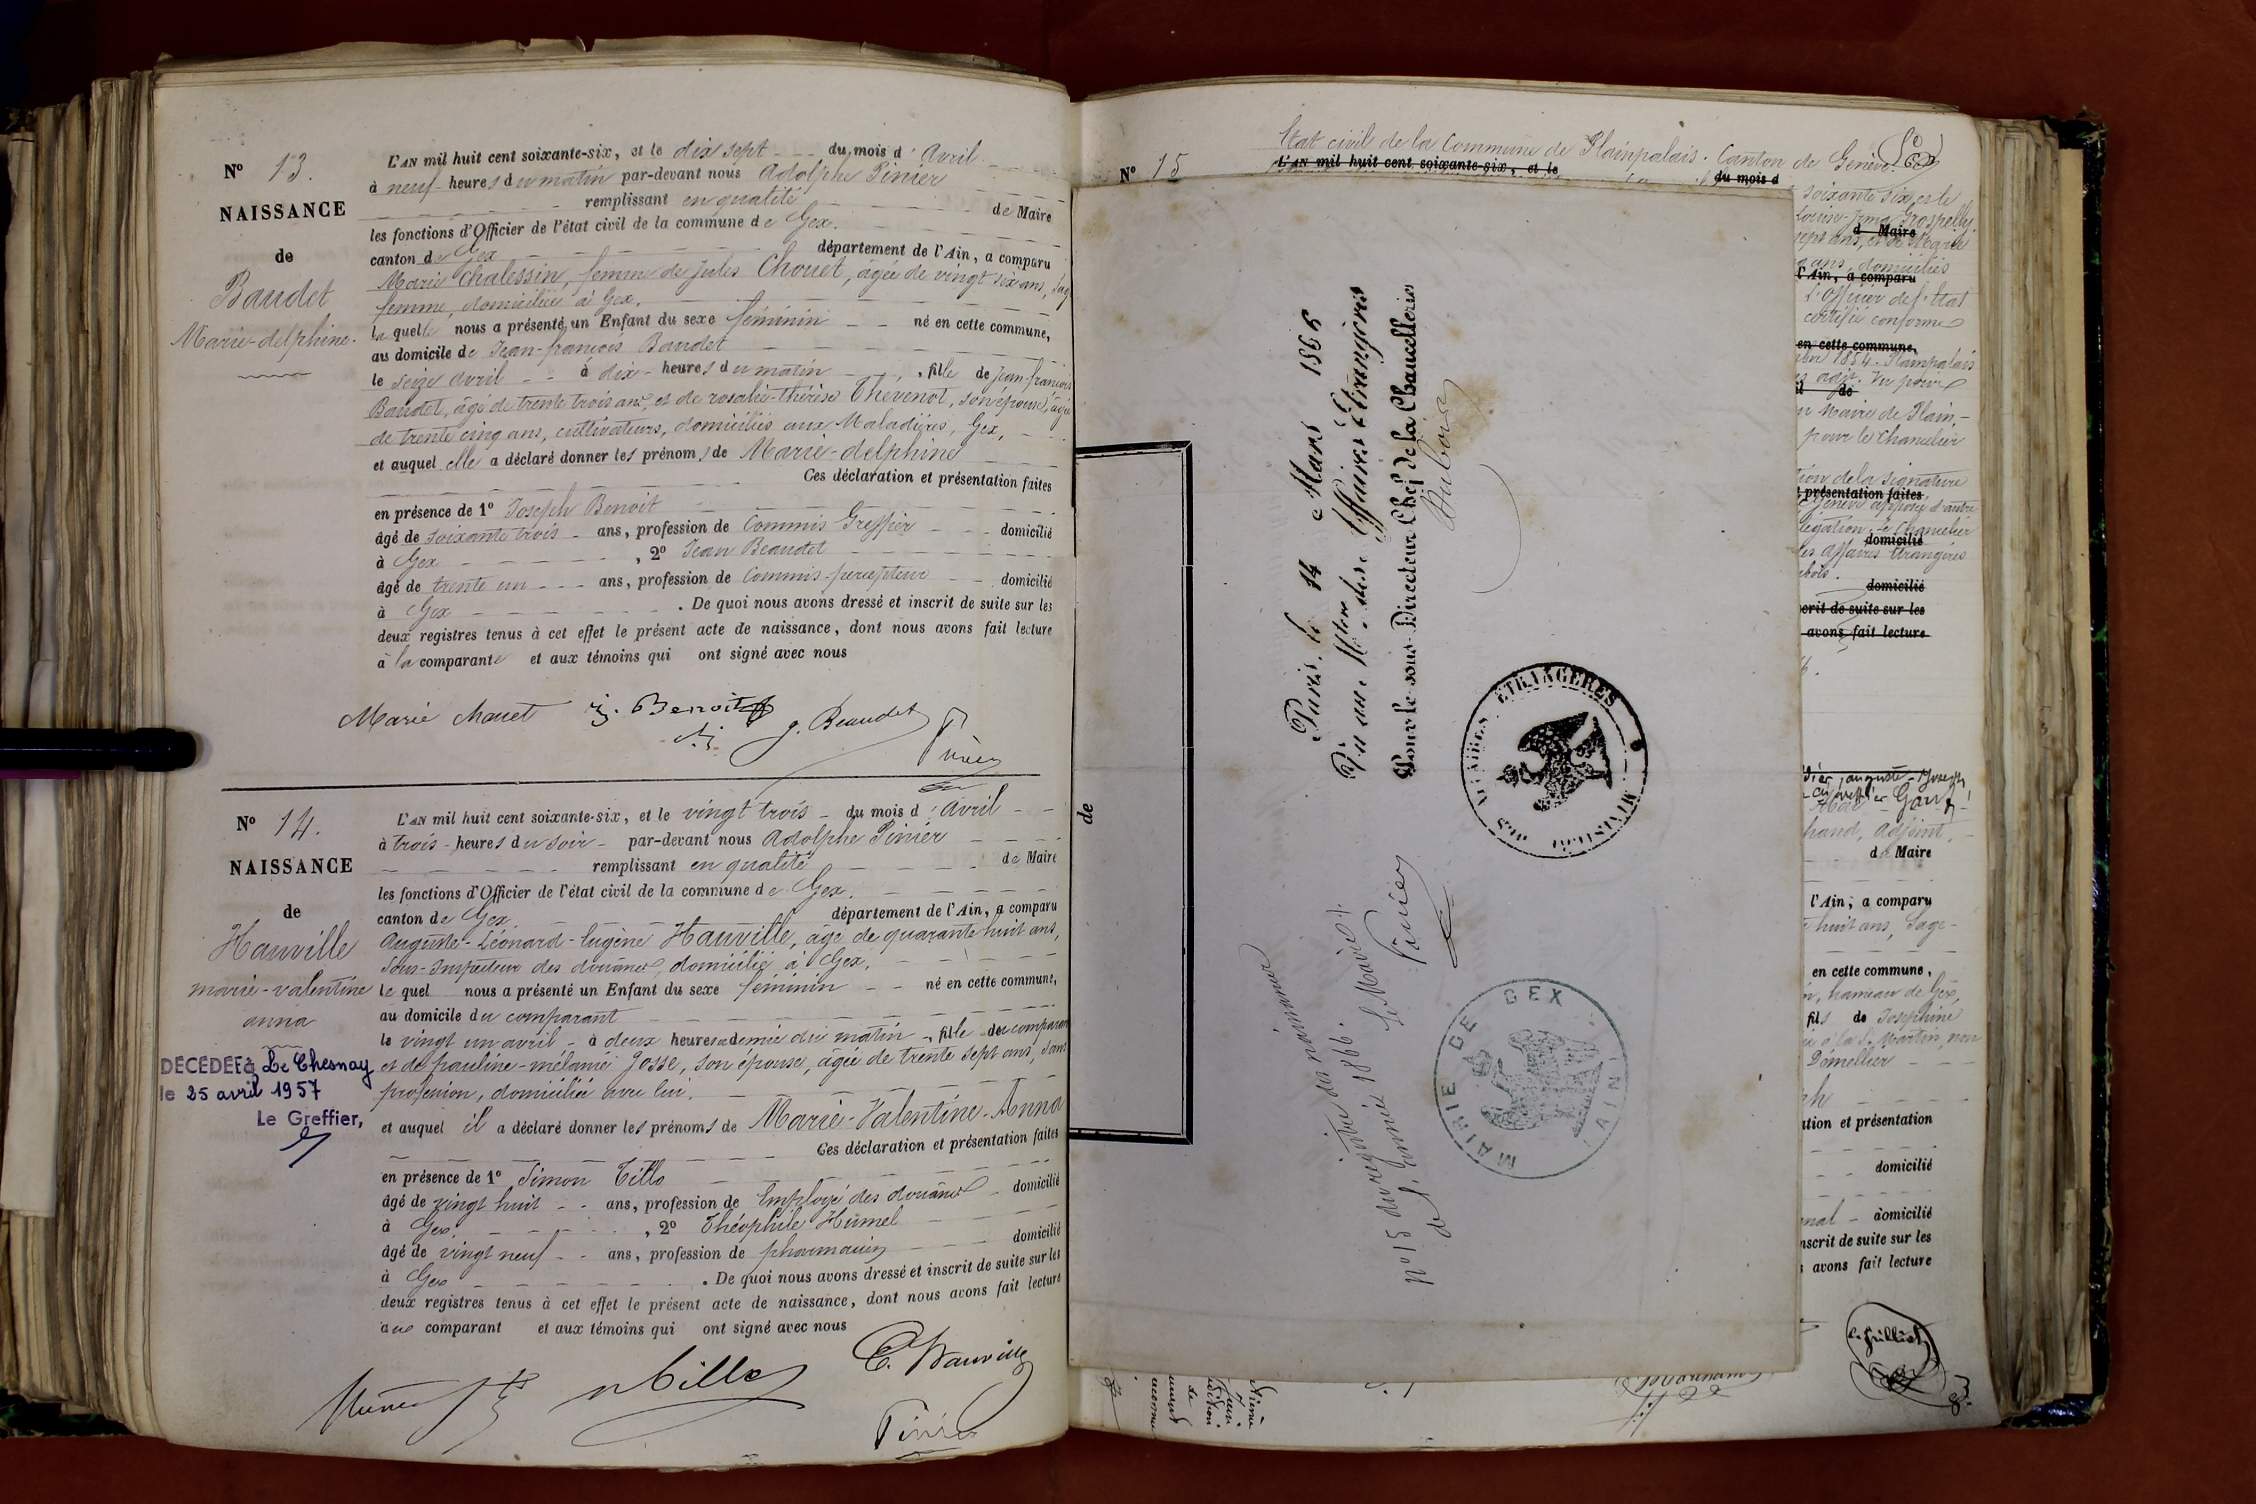 N° 13.
NAISSANCE
de
Baudet
Marie-delphine.
L'AN mil huit cent soixante-six, et le dix sept du mois d'Avril
à neuf heures du matin par-devant nous Adolphe Pinier
remplissant en qualité de Maire
les fonctions d'Officier de l'état civil de la commune de Gex.
canton de Gex département de l'Ain, a comparu
Marie Chalessin, femme de Jules Chouet, âgée de vingt six ans, sage
femme, domiciliée à Gex.
laquelle nous a présenté un Enfant du sexe féminin né en cette commune,
au domicile de Jean-françois Baudet
le seize avril à dix heures du matin, fille de Jean-françois
Baudet, âgé de trente trois ans, et de rosalie-thérèse Thevenot, son épouse, âgée
de trente cinq ans, cultivateurs, domiciliés aux Maladières, Gex,
et auquel elle a déclaré donner les prénoms de Marie-delphine
Ces déclaration et présentation faites
en présence de 1° Joseph Benoit
âgé de soixante trois ans, profession de Commis Greffier domicilié
à Gex, 2° Jean Beaudet
âgé de trente un ans, profession de Commis-percepteur domicilié
à Gex. De quoi nous avons dressé et inscrit de suite sur les
deux registres tenus à cet effet le présent acte de naissance, dont nous avons fait lecture
à la comparante et aux témoins qui ont signé avec nous
Marie Chouet J. Benoit J. Beaudet
Pinier
N° 14.
NAISSANCE
de
Hauville
marie-valentine
anna
DÉCÉDÉE à Le Chesnay
le 25 avril 1957
Le Greffier,
L'AN mil huit cent soixante-six, et le vingt trois du mois d'Avril
à trois heures du soir par-devant nous Adolphe Pinier
remplissant en qualité de Maire
les fonctions d'Officier de l'état civil de la commune de Gex.
canton de Gex. département de l'Ain, a comparu
Auguste-Léonard-Eugène Hauville, âgé de quarante huit ans,
Sous-Inspecteur des douanes, domicilié à Gex.
le quel nous a présenté un Enfant du sexe féminin né en cette commune,
au domicile du comparant
le vingt un avril à deux heures et demie du matin, fille du comparant
et de pauline-mélanie Josse, son épouse, âgée de trente sept ans, sans
profession, domiciliée avec lui.
et auquel il a déclaré donner les prénoms de Marie-Valentine-Anna
Ces déclaration et présentation faites
en présence de 1° Simon Tillo
âgé de vingt huit ans, profession de Employé des douanes domicilié
à Gex., 2° Théophile Humel
âgé de vingt neuf ans, profession de pharmacien domicilié
à Gex. De quoi nous avons dressé et inscrit de suite sur les
deux registres tenus à cet effet le présent acte de naissance, dont nous avons fait lecture
aux comparant et aux témoins qui ont signé avec nous
Tillo E. Hauville
Pinier
N° 15
Etat civil de la Commune de Plainpalais. Canton de Genève
L'AN mil huit cent soixante-six, et le du mois d
de
Paris, le 14 Mars 1866
Vu au Mtère des Affaires Etrangères
Pour le sous-Directeur Chef de la Chancellerie
Dubois
MINISTÈRE DES AFFAIRES ÉTRANGÈRES
n° 15 du registre des naissances
de l'année 1866.
Le Maire
Pinier
MAIRIE DE GEX
(AIN)
soixante six, et le
d Maire
ans, domiciliés
l'Ain, a comparu
L'officier de l'Etat
certifié conforme
en cette commune,
1854. Plainpalais
de
Maire de Plain-
pour le chancelier
de la signature
présentation faites
domicilié
affaires étrangères
domicilié
crit de suite sur les
avons fait lecture
Adjoint,
de Maire
l'Ain, a comparu
huit ans, Sage-
en cette commune,
hameau de Gex,
fils de Josephine
ation et présentation
domicilié
domicilié
nscrit de suite sur les
avons fait lecture